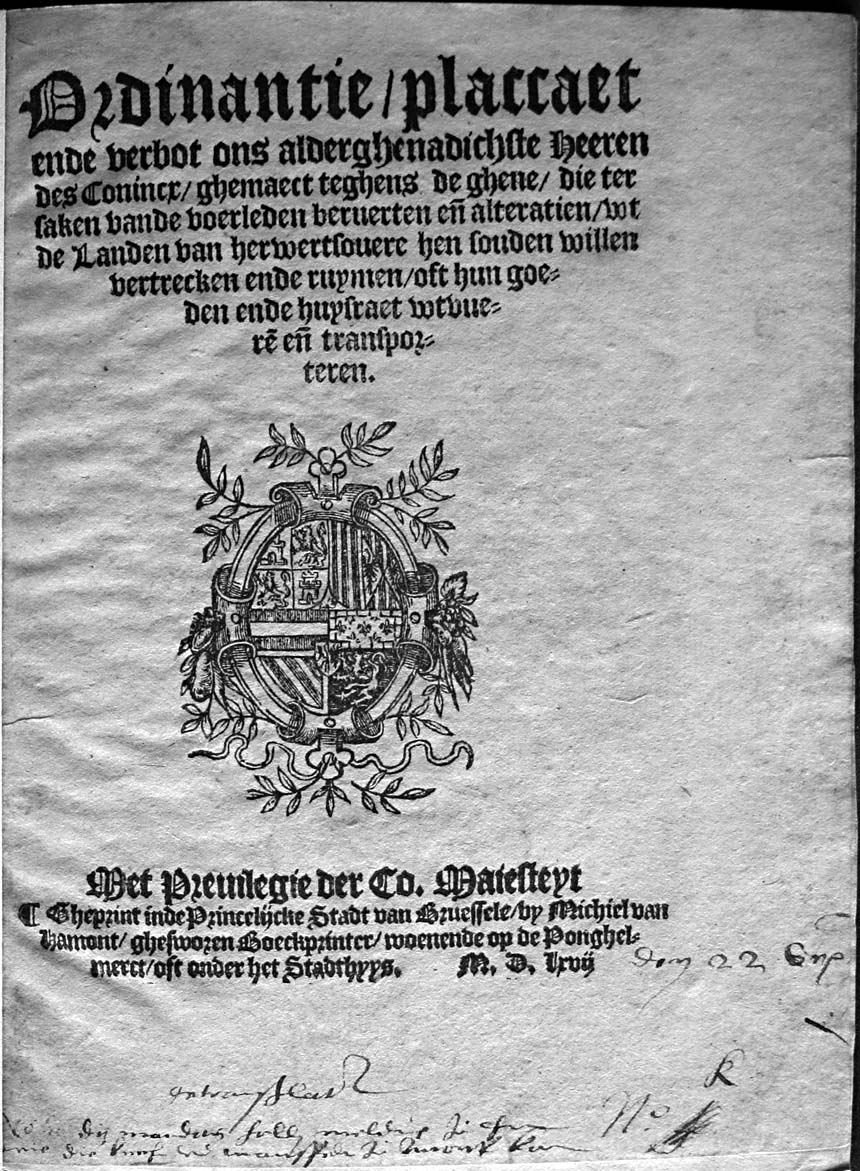 Ordinantie/placcaet
ende verbot ons alderghenadichste Heeren
des Conincx/ ghemaect teghens de ghene/ die ter
saken vande voerleden beruerten eñ alteratien/wt
de Landen van herwertsouere hen souden willen
vertrecken ende ruymen/oft hun goe⸗
den ende huysraet wtvue⸗
rẽ eñ transpor⸗
teren.
Met Preuilegie der Co. Maiesteyt
¶ Gheprint inde Princelijcke Stadt van Bruessele/by Michiel van
Hamont/ ghesworen Boeckprinter/ woenende op de Ponghel⸗
merct/oft onder het Stadthuys. M. D. lxvij
den 22
No